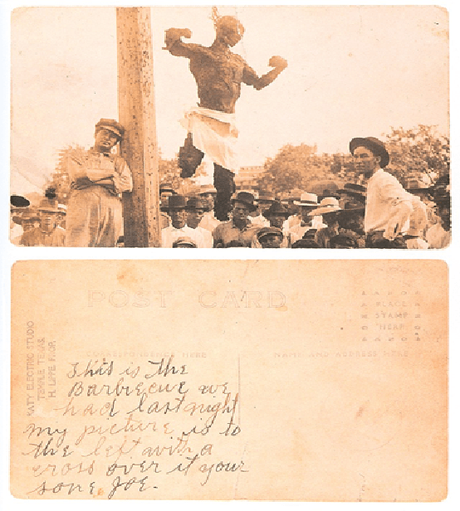 POST CARD
PLACE
STAMP
HERE
NAME AND ADDRESS HERE
KATY ELECTRIC STUDIO
TEMPLE TEXAS
H. LIPPE
This is the
Barbecue we
had last night
My picture is to
the left with a
cross over it your
sone Joe.